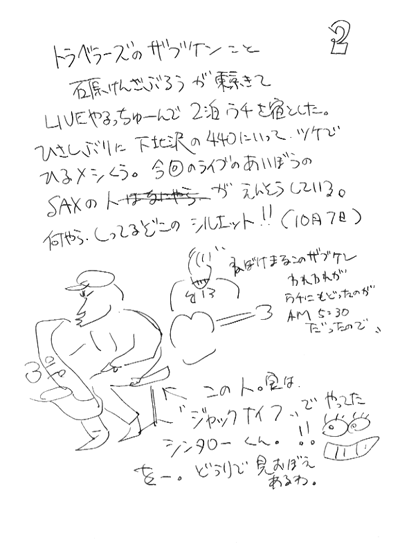 2
トラベラーズのザブケンこと
石原けんざぶろうが東京きて
LIVEやるっちゅーんで2泊ウチを宿とした。
ひさしぶりに下北沢の440にいって、ツケで
ひるメシくう。今回のライブのあいぼうの
SAXの人 が えんそうしている。
何やら、しってるどこのシルエット!! (10月7日)
ねぼけまなこのザブケン
われわれが
ウチにもどったのが
AM 5:30
だったので、
この人。実は、
"ジャックナイフ"でやってた
シンタローくん。!!
を一。どうりで見おぼえ
あるわ。